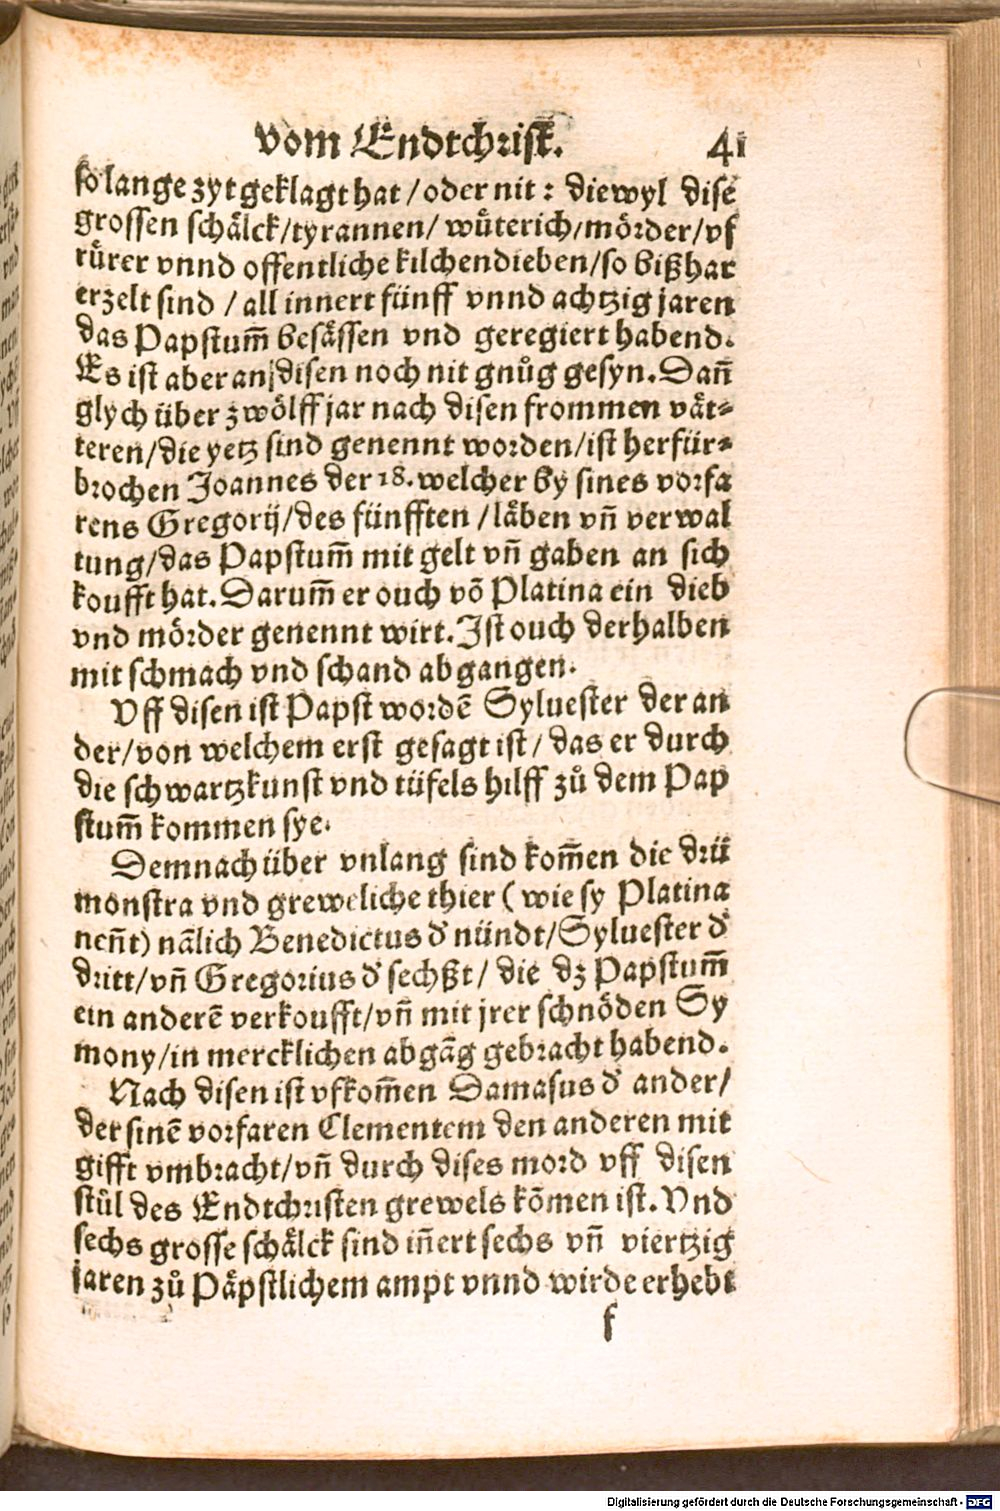 vom Endtchrist. 41
so lange zyt geklagt hat / oder nit : diewyl dise
grossen schaͤlck / tyrannen / wuͤterich / moͤrder / vf
ruͤrer vnnd offentliche kilchendieben / so bißhar
erzelt sind / all innert fünff vnnd achtzig jaren
das Papstum̃ besaͤssen vnd geregiert habend.
Es ist aber an disen noch nit gnuͦg gesyn. Dañ
glych über zwoͤlff jar nach disen frommen vaͤt⸗
teren / die yetz sind genennt worden / ist herfür⸗
brochen Joannes der 18. welcher by sines vorfa
rens Gregorij / des fünfften / laͤben vñ verwal
tung / das Papstum̃ mit gelt vñ gaben an sich
koufft hat. Darum̃ er ouch võ Platina ein dieb
vnd moͤrder genennt wirt. Ist ouch derhalben
mit schmach vnd schand abgangen.
Vff disen ist Papst wordẽ Syluester der an
der / von welchem erst gesagt ist / das er durch
die schwartzkunst vnd tüfels hilff zuͦ dem Pap
stum̃ kommen sye.
Demnach über vnlang sind kom̃en die drü
monstra vnd greweliche thier ( wie sy Platina
neñt) nãlich Benedictus d' nündt / Syluester d'
dritt / vñ Gregorius d' sechßt / die dz Papstum̃
ein anderẽ verkoufft / vñ mit jrer schnoͤden Sy
mony / in mercklichen abgãg gebracht habend.
Nach disen ist vfkom̃en Damasus d' ander /
der sinẽ vorfaren Clementem den anderen mit
gifft vmbracht / vñ durch dises mord vff disen
stuͤl des Endtchristen grewels kõmen ist. Vnd
sechs grosse schaͤlck sind iñert sechs vñ viertzig
jaren zuͦ Paͤpstlichem ampt vnnd wirde erhebt
f
Digitalisierung gefördert durch die Deutsche Forschungsgemeinschaft - DFG